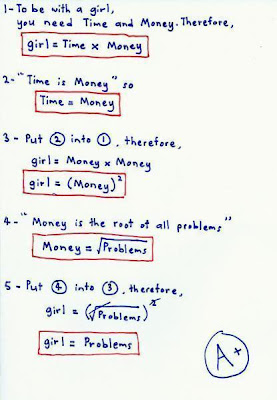 1-To be with a girl,
you need Time and Money. Therefore,
girl = Time x Money
2-"Time is Money" so
Time = Money
3 - Put ② into ①, therefore,
girl = Money x Money
girl = (Money)²
4-"Money is the root of all problems"
Money = √Problems
5 - Put ④ into ③, therefore,
girl = (√Problems)²
girl = Problems
A+